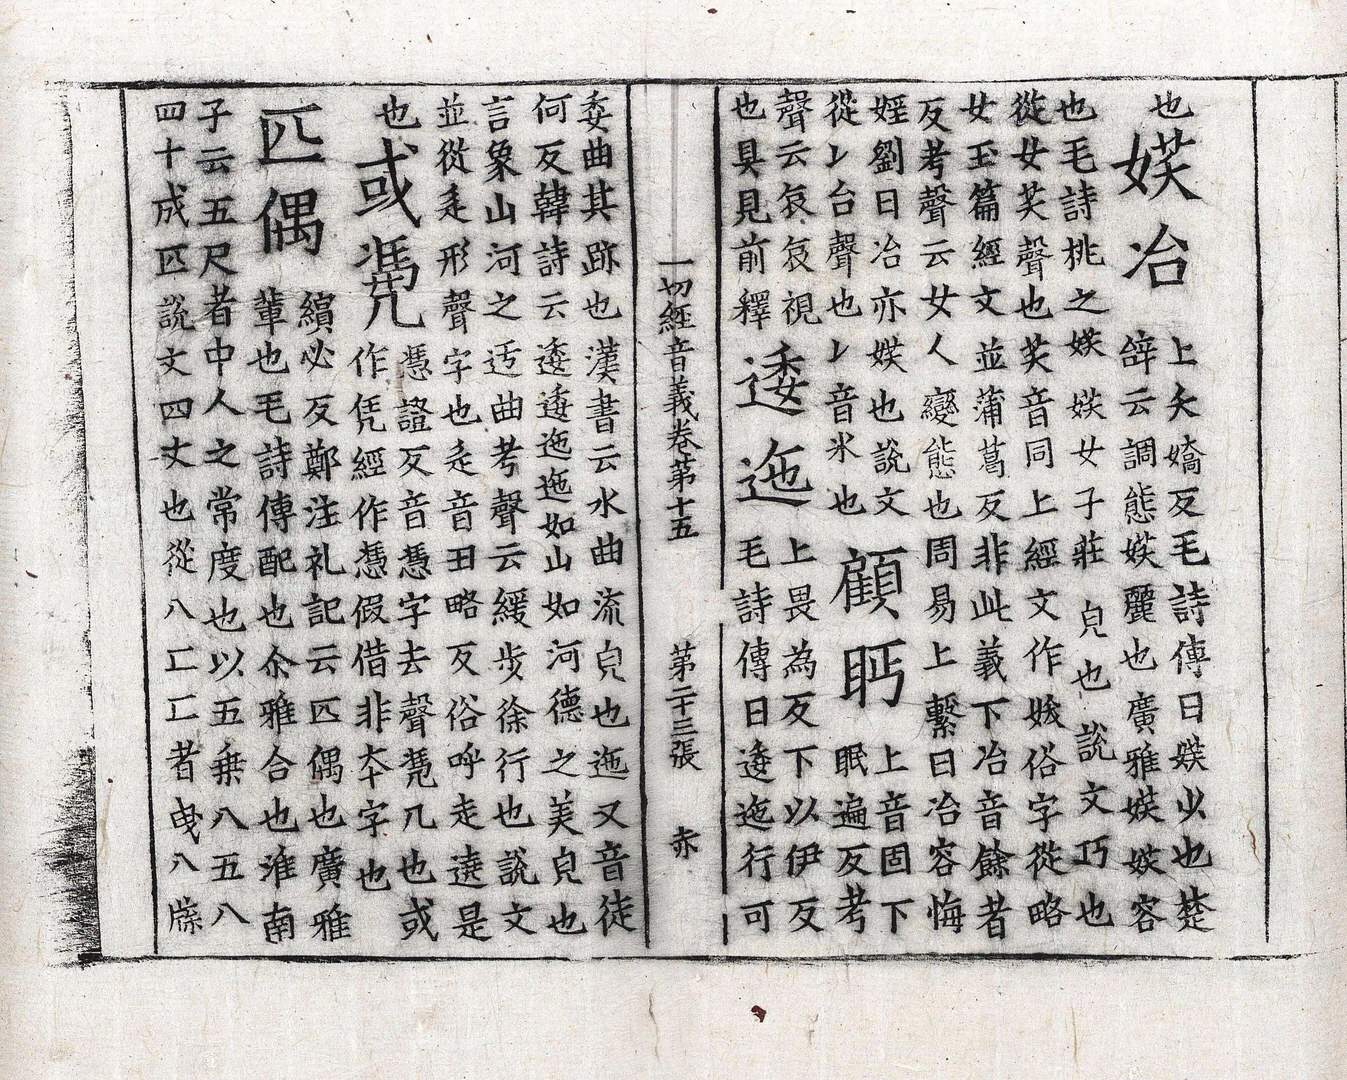 也
𡝩冶
上夭嬌反毛詩傳曰𡝩少也楚
辝云調態𡝩麗也廣雅𡝩𡝩容
也毛詩桃之𡝩𡝩女子莊皃也說文巧也
從女芺聲也芺音同上經文作妭俗字從略
女玉篇經文並蒲葛反非此義下冶音餘者
反考聲云女人變態也周易上繫曰冶容悔
婬劉曰冶亦𡝩也說文
從冫台聲也冫音氷也
顧眄
上音固下
眠遍反考
聲云哀哀視
也具見前釋
逶迤
上畏為反下以伊反
毛詩傳曰逶迤行可
一切經音義卷第十五 第二十三張 赤
委曲其跡也漢書云水曲流皃也迤又音徒
何反韓詩云逶逶迤迤如山如河德之美皃也
言象山河之迃曲考聲云緩步徐行也說文
並從辵形聲字也辵音丑略反俗呼走遶是
也
或凴
憑證反音憑字去聲凴几也或
作凭經作憑假借非本字也
匹偶
繽必反鄭注礼記云匹偶也廣雅
輩也毛詩傳配也尒雅合也淮南
子云五尺者中人之常度也以五乗八五八
四十成匹說文四丈也從八匸匸者曳八牒